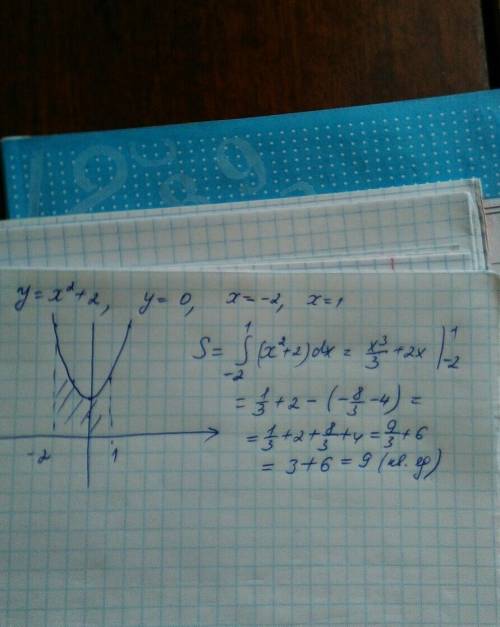 289
y = x² + 2, y = 0, x = -2, x = 1
S = ∫₋₂¹ (x² + 2) dx = x³/3 + 2x |₋₂¹
= 1/3 + 2 - (-8/3 - 4) =
= 1/3 + 2 + 8/3 + 4 = 9/3 + 6
= 3 + 6 = 9 (кв. ед)
-2 1